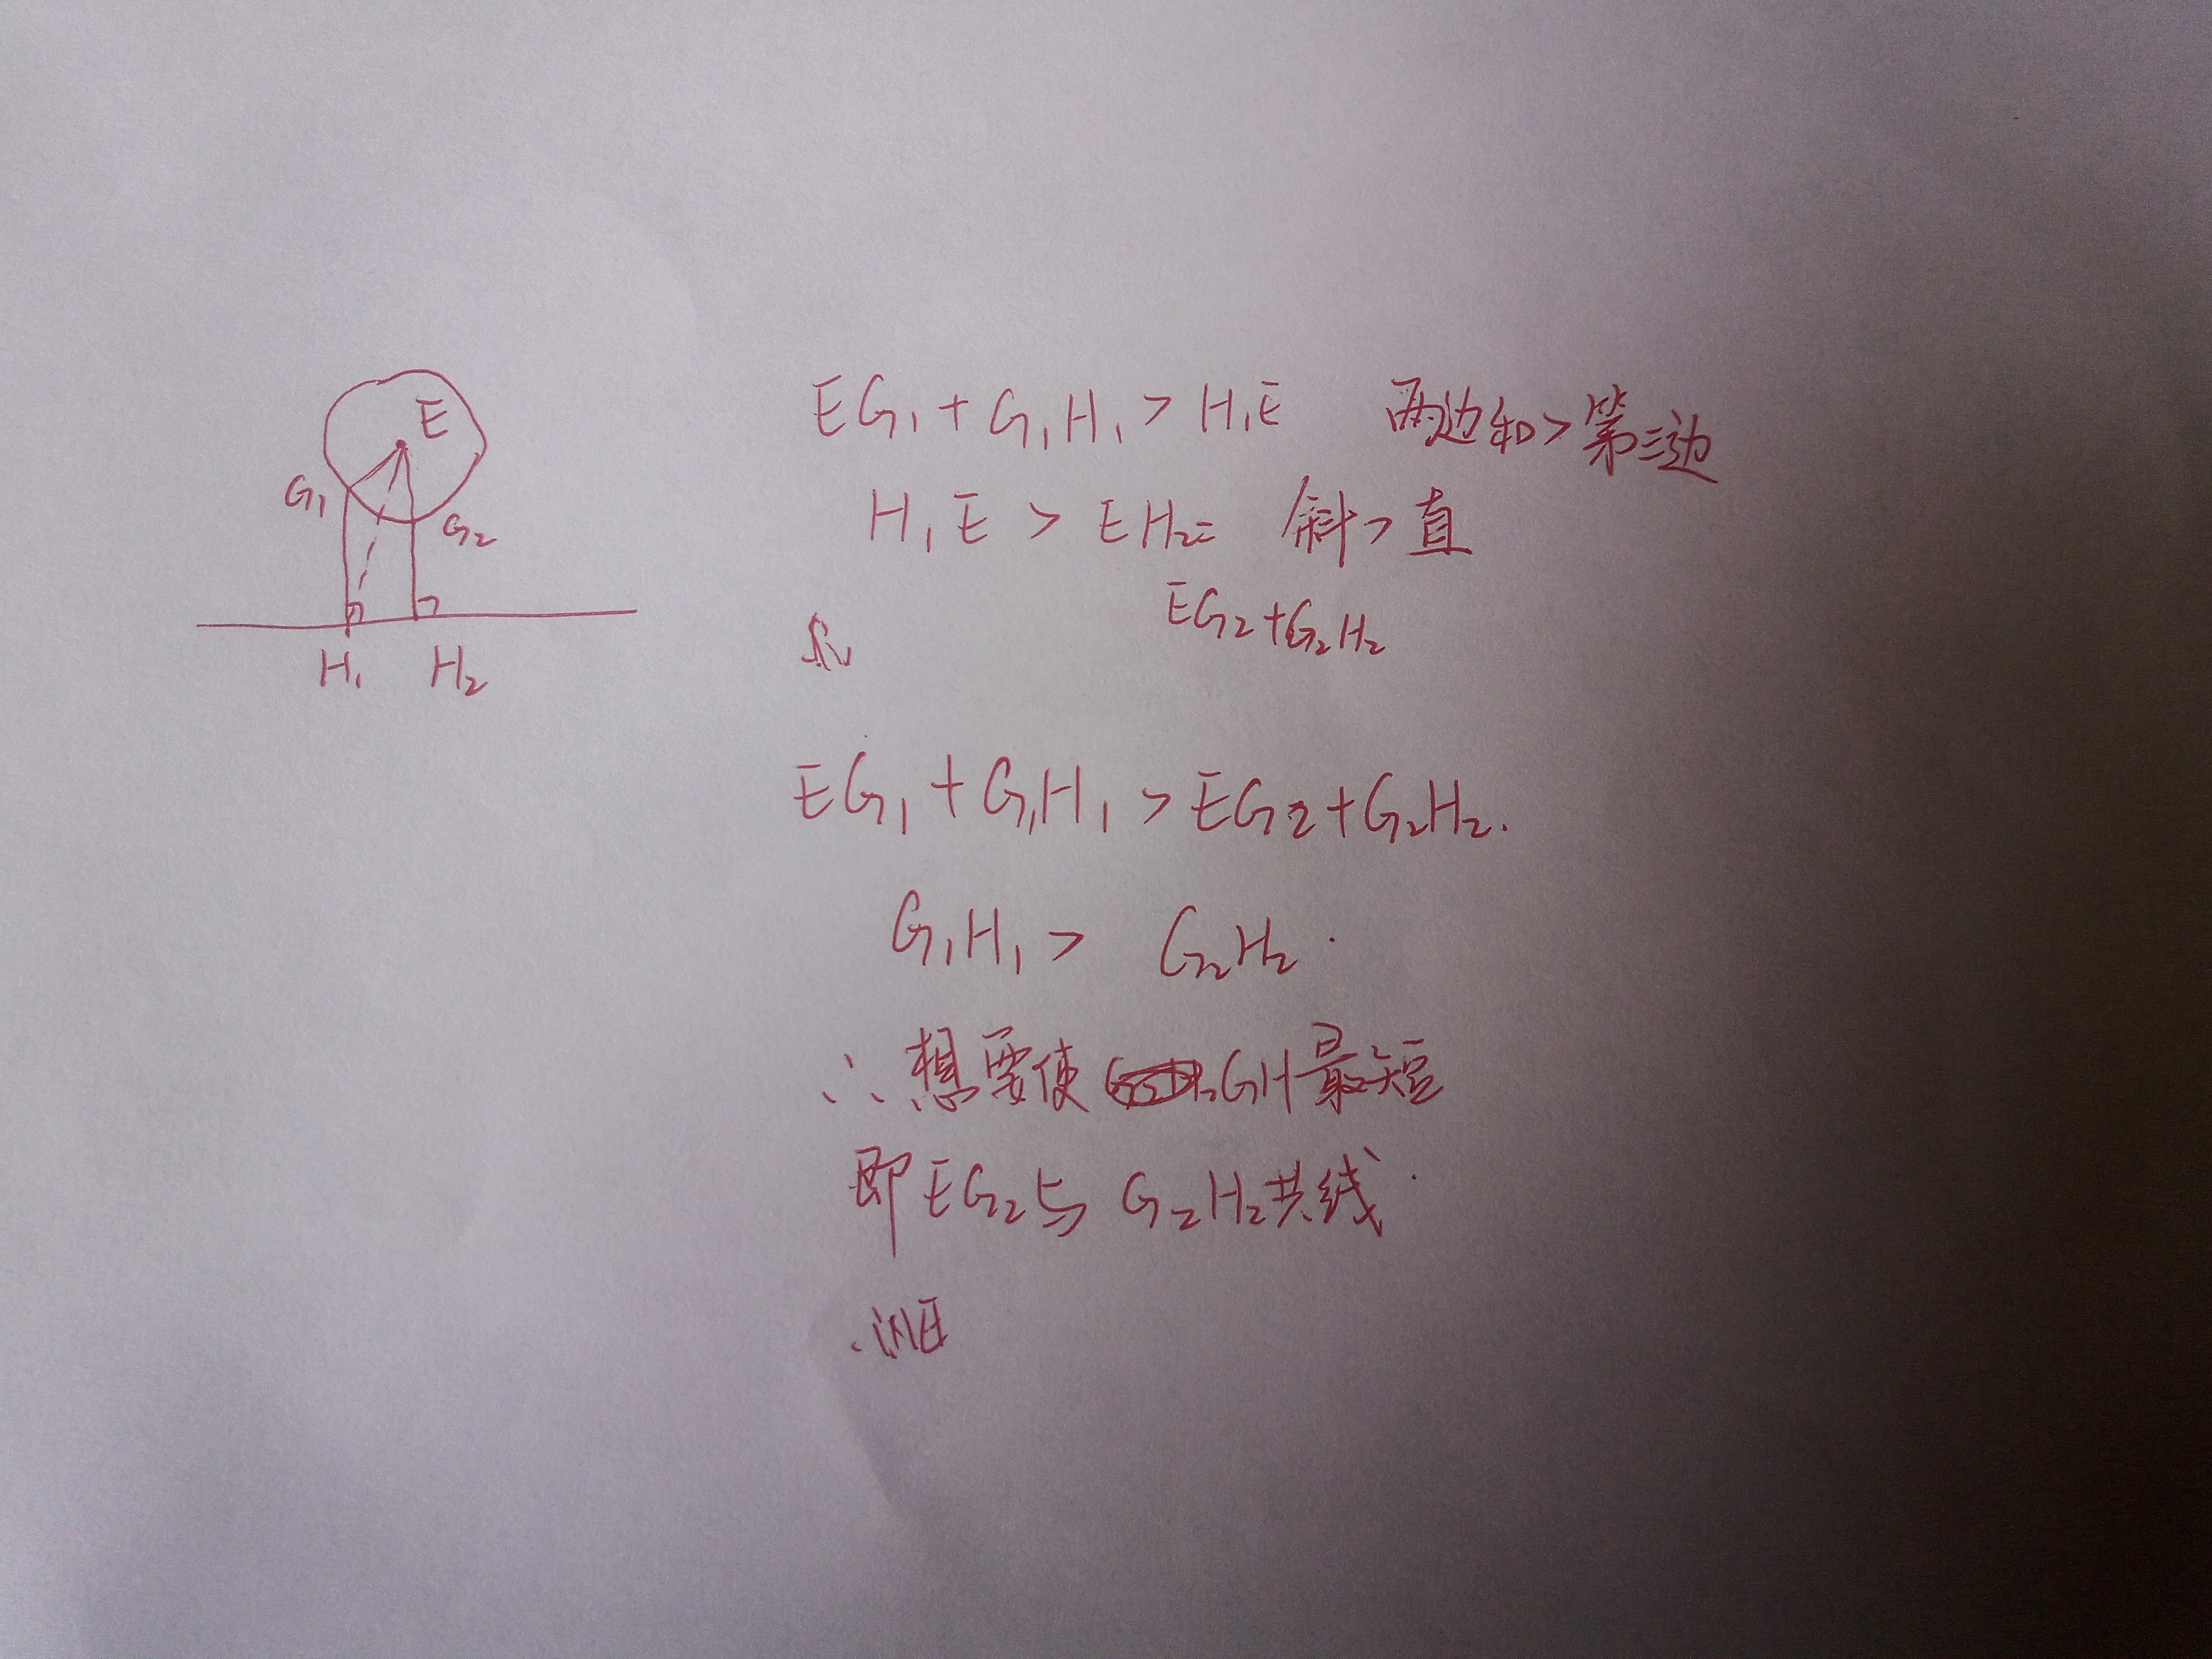 E
G₁
G₂
H₁ H₂
EG₁ + G₁H₁ > H₁E 两边和>第三边
H₁E > EH₂= 斜>直
EG₂+G₂H₂
EG₁ + G₁H₁ > EG₂+G₂H₂.
G₁H₁ > G₂H₂.
∴想要使 GH最短
即EG₂与 G₂H₂共线.